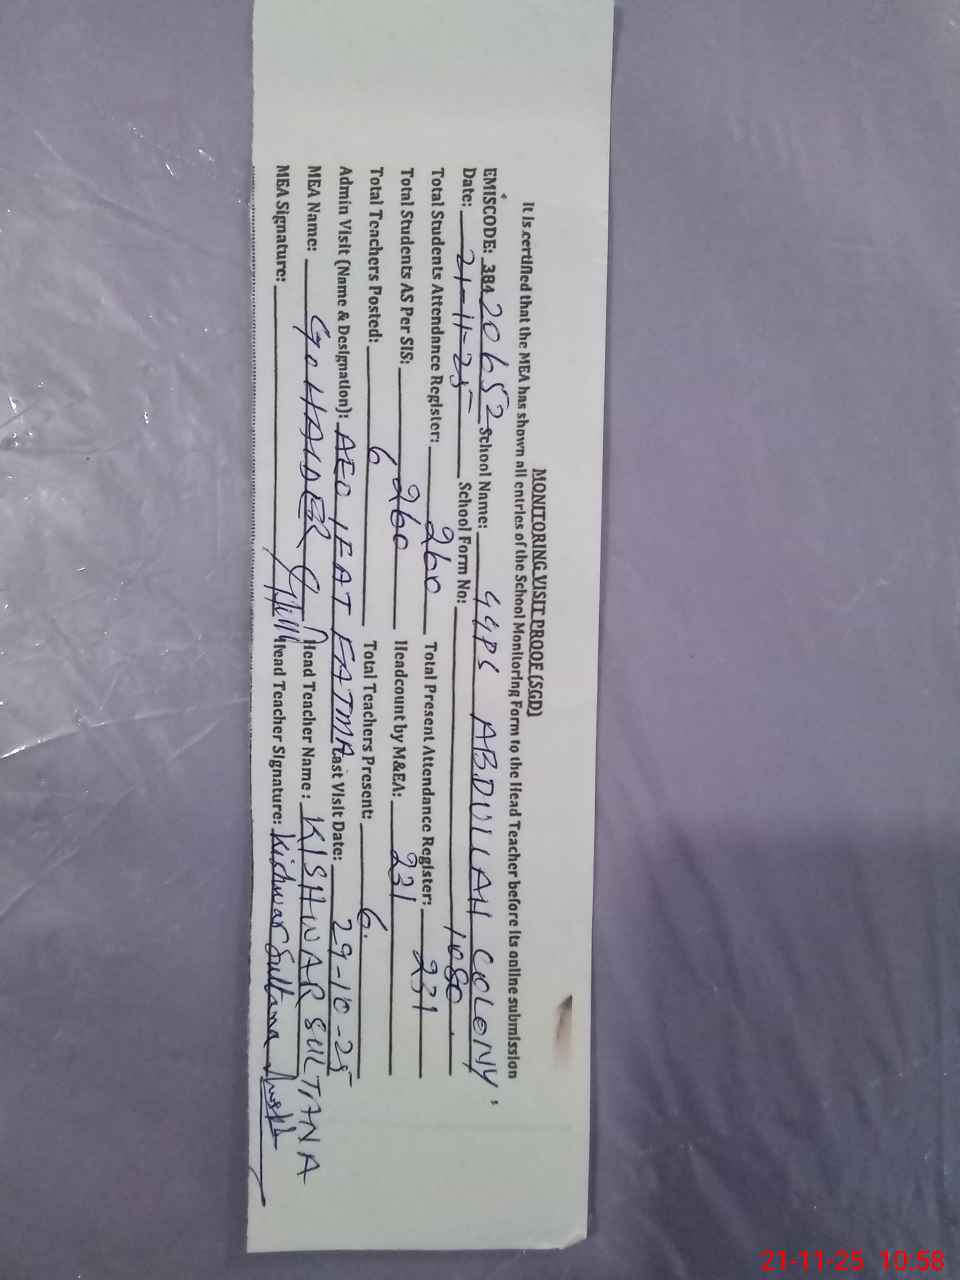 MONITORING VISIT PROOF (SGD)
It is certified that the MEA has shown all entries of the School Monitoring Form to the Head Teacher before its online submission
EMISCODE: 384 20652 School Name: GGPS ABDULLAH COLONY
Date: 21-11-25 School Form No: 1080
Total Students Attendance Register: 260 Total Present Attendance Register: 231
Total Students AS Per SIS: 260 Headcount by M&EA: 231
Total Teachers Posted: 6 Total Teachers Present: 6.
Admin Visit (Name & Designation): AEO IFAT FATMA Last Visit Date: 29-10-25
MEA Name: G. HAIDER Head Teacher Name: KISHWAR SULTANA
MEA Signature: Head Teacher Signature: Kishwar Sultana
21-11-25 10:58